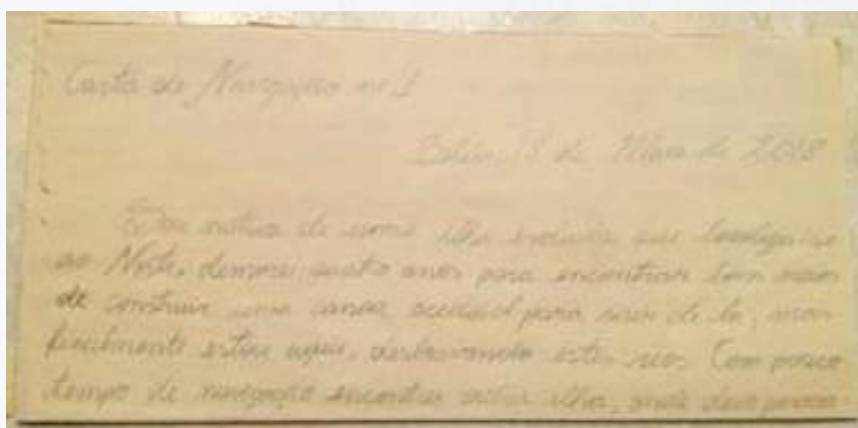 Carta de Navegação nº 1
Belém, 18 de Maio de 2018
Sou nativa de uma ilha isolada que localiza-se
ao Norte, demorei quatro anos para encontrar um meio
de construir uma canoa para sair de lá, mas
finalmente estou aqui, desbravando estes rios. Com pouco
tempo de navegação encontrei outra ilha, onde